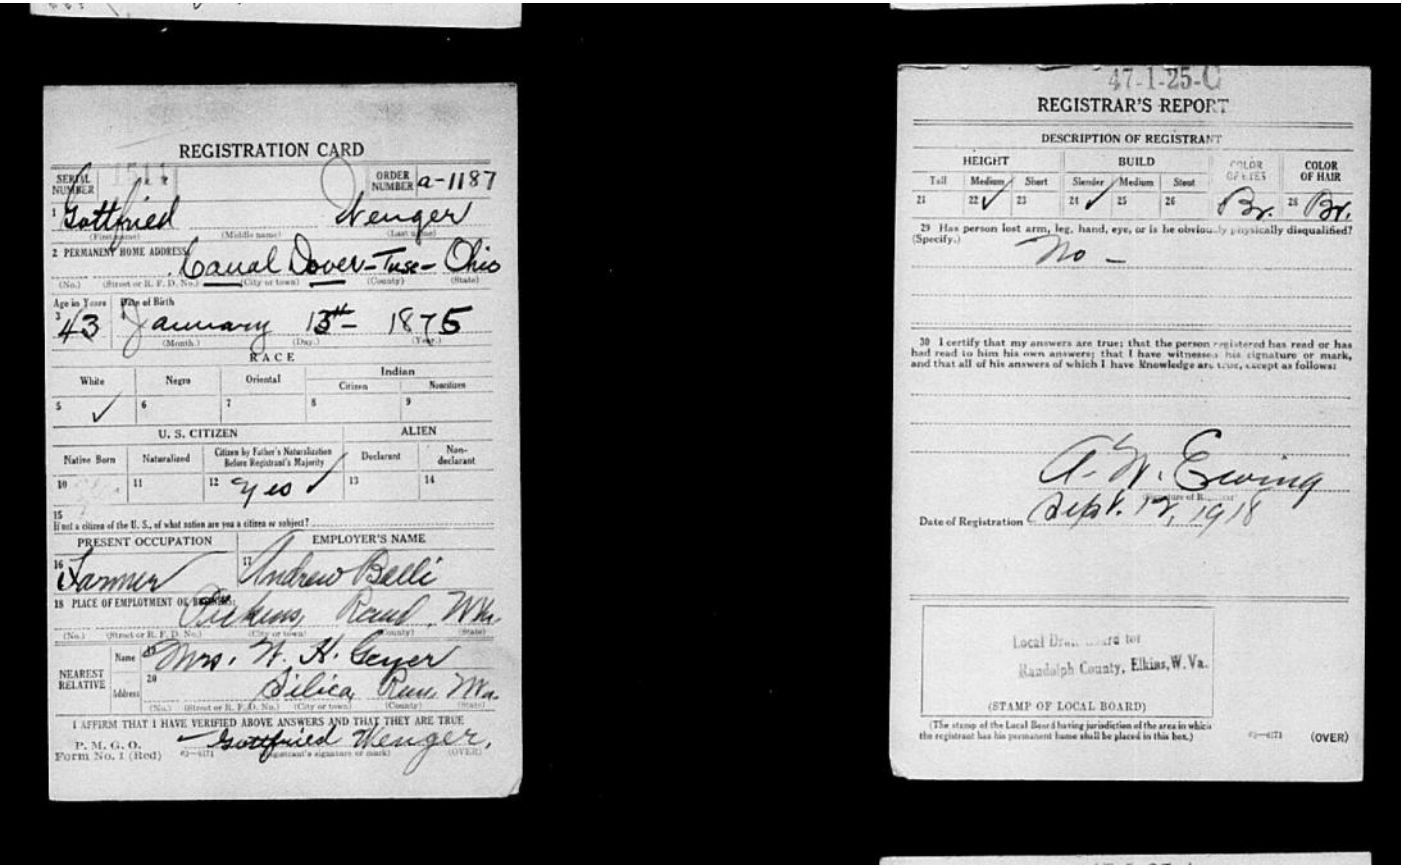 REGISTRATION CARD
SERIAL NUMBER 1511
ORDER NUMBER a-1187
1 Gottfried Wenger
(First name) (Middle name) (Last name)
2 PERMANENT HOME ADDRESS
Canal Dover-Tusc-Ohio
(No.) (Street or R. F. D. No.) (City or town) (County) (State)
Age in Years Date of Birth
3 43 January 13th- 1875
(Month.) (Day.) (Year.)
RACE
White Negro Oriental Indian
Citizen Noncitizen
5 ✓ 6 7 8 9
U. S. CITIZEN ALIEN
Native Born Naturalized Citizen by Father's Naturalization Before Registrant's Majority Declarant Non-declarant
10 11 12 Yes ✓ 13 14
15
If not a citizen of the U. S., of what nation are you a citizen or subject?
PRESENT OCCUPATION EMPLOYER'S NAME
16 Farmer 17 Andrew Balli
18 PLACE OF EMPLOYMENT OR
Pickens, Rand. WVa.
(No.) (Street or R. F. D. No.) (City or town) (County) (State)
NEAREST RELATIVE Name 19 Mrs. W. H. Geyer
Address 20 Silica, Ran, WVa.
(No.) (Street or R. F. D. No.) (City or town) (County) (State)
I AFFIRM THAT I HAVE VERIFIED ABOVE ANSWERS AND THAT THEY ARE TRUE
P. M. G. O.
Form No. 1 (Red) 03-6171 Gottfried Wenger.
(Registrant's signature or mark) (OVER)
47-1-25-C
REGISTRAR'S REPORT
DESCRIPTION OF REGISTRANT
HEIGHT BUILD COLOR OF EYES COLOR OF HAIR
Tall Medium Short Slender Medium Stout
21 22 ✓ 23 24 ✓ 25 26 Br. 28 Br.
29 Has person lost arm, leg, hand, eye, or is he obviously physically disqualified?
(Specify.) No -
30 I certify that my answers are true; that the person registered has read or has
had read to him his own answers; that I have witnessed his signature or mark,
and that all of his answers of which I have knowledge are true, except as follows:
A. W. Ewing
(Signature of Registrar)
Date of Registration Sept. 12, 1918
Local Draft Board for
Randolph County, Elkins, W. Va.
(STAMP OF LOCAL BOARD)
(The stamp of the Local Board having jurisdiction of the area in which
the registrant has his permanent home shall be placed in this box.)
03-6171 (OVER)